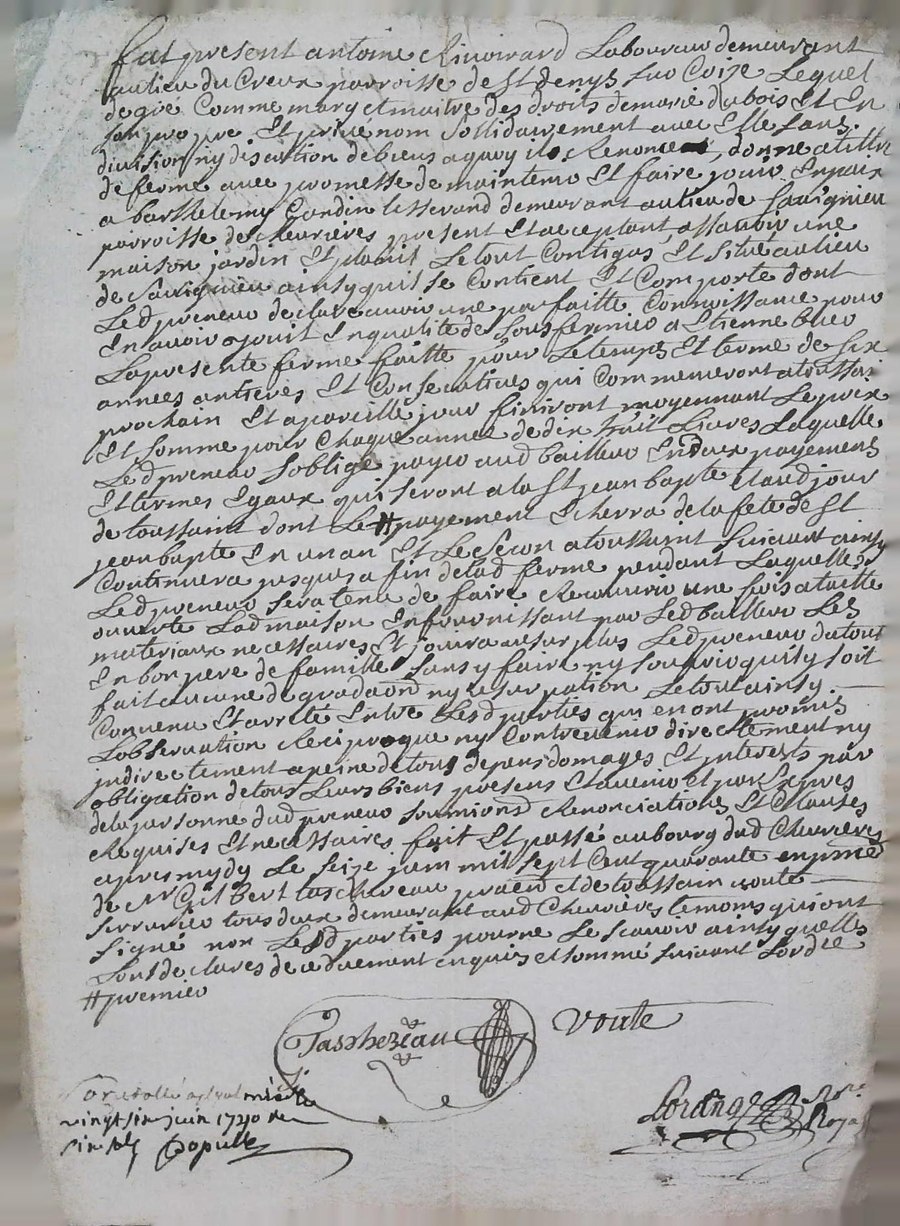 fut present antoine Rinoirard Laboureur demeurant
au lieu du Creux parroisse de St denys sur Coize Lequel
de gré Comme mary et maitre des droits de marie dubois Et En
son propre Et privé nom sollidairement avec Elle sans
division ny discution de biens a quoy ils Renoncent, donne a tittre
de ferme avec promesse de maintenir Et faire jouir En paix
a barthelemy Gardin tisserand demeurant au lieu de Savignieu
parroisse de chevrieres present Et acceptant assavoir une
maison jardin Et Le tout Contigus Et situé au lieu
de Savignieu ainsy quil se Contient Et Comporte dont
Led preneur declare avoir une parfaitte Connoissance pour
En avoir jouit En qualité de sous fermier a Etienne
La presente ferme faitte pour Le temps Et terme de six
années antieres Et Consecutives qui Commenceront a toussain
prochain Et a pareille jour finiront moyennant Le prix
Et somme pour Chaque année de dix huit Livres Laquelle
Led preneur soblige payer aud bailleur En deux payements
Et termes Egaux qui seront a la St jean bapte Et aud jour
de toussaint dont Le # payement Echerra de la fete de St
jean bapte En un an Et Le Secon a toussaint suivant ainsy
Continuera jusques a fin de lad ferme pendant Laquelle
Led preneur sera tenu de faire Recouvrir une fois a taille
ouverte Lad maison En fournissant par Led bailleur Les
materiaux necessaires Et jouira au surplus Led preneur du tout
En bon pere de famille sans y faire ny souffrir quil y soit
fait aucune degradaõn ny usurpation Le tout ainsy
Convenu Et arrêté Entre Lesd parties qui en ont promis
Lobservation Reciproque ny Contrevenir directement ny
jndirectement a peine de tous depens domages Et jnterests par
obligation de tous Leurs biens presens Et avenir et par Expres
de la personne dud preneur soumions Renonciations Et Clauses
Requises Et necessaires fait Et passé au bourg dud Chevrieres
apres mydy Le seize juin mil sept Cent quarante en pnce
de Mr Gilbert taschereau praen et de toussain voute
serrurier tous deux demeurant aud Chevrieres temoins qui ont
signé non Lesd parties pour ne Le scavoir ainsy quelles
sont declarés de ce duement enquis et sommé suivant Lord ce
# premier
Taschereau voute
Controllé a
vingt six juin 1740 Re
six sols Populle
Lorange Nore
Royal